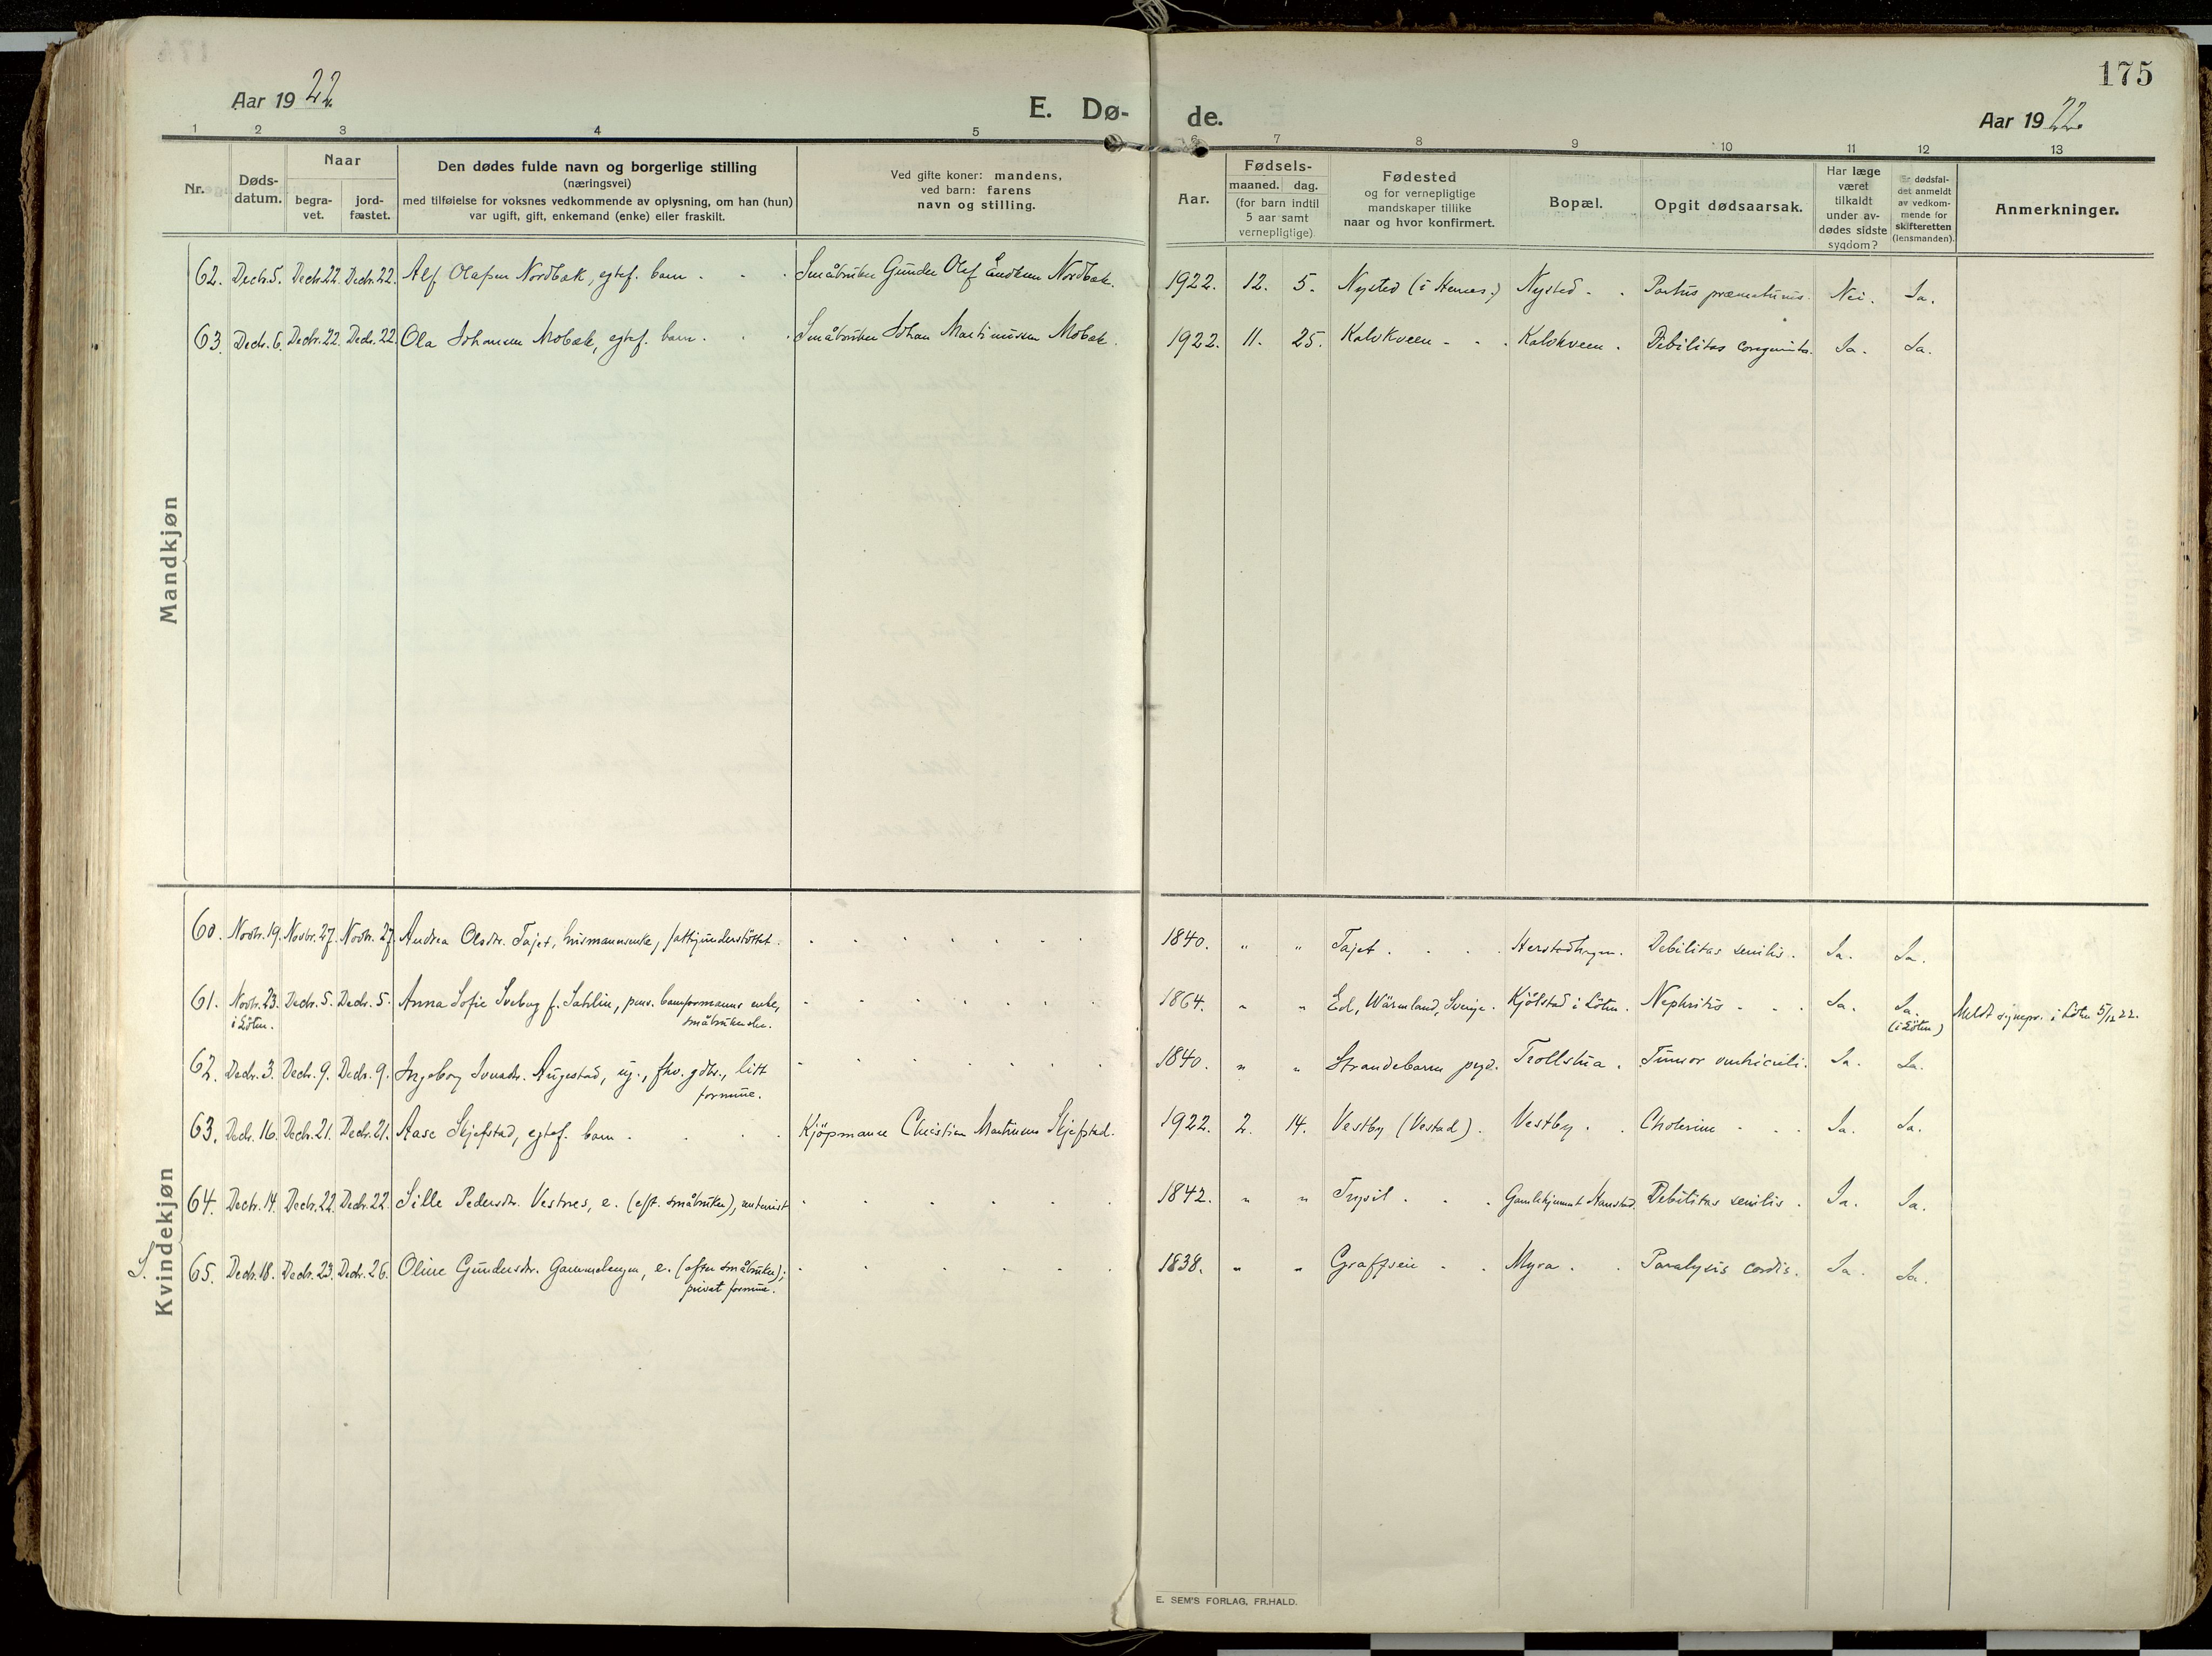 175
Aar 1922
E. Dø-
de.
Aar 1922.
1 2 3 4 5 6 7 8 9 10 11 12 13
Nr.
Døds-
datum.
Naar
begra-
vet.
jord-
fæstet.
Den dødes fulde navn og borgerlige stilling
(næringsvei)
med tilføielse for voksnes vedkommende av oplysning, om han (hun)
var ugift, gift, enkemand (enke) eller fraskilt.
Ved gifte koner: mandens,
ved barn: farens
navn og stilling.
Aar.
Fødsels-
maaned. dag.
(for barn indtil
5 aar samt
vernepligtige)
Fødested
og for vernepligtige
mandskaper tillike
naar og hvor konfirmert.
Bopæl.
Opgit dødsaarsak.
Har læge
været
tilkaldt
under av-
dødes sidste
sygdom?
Er dødsfal-
det anmeldt
av vedkom-
mende for
skifteretten
(lensmanden).
Anmerkninger.
Mandkjøn
62. Decbr. 5. Decbr. 22. Decbr. 22. Alf Olafsen Nordbæk, egtef. barn. Småbruker Gunder Olaf Nordbæk. 1922. 12. 5. Nysted Nysted. Partus præmaturus. Nei. Ja.
63. Decbr. 6. Decbr. 22. Decbr. 22. Ola Johansen Mobæk, egtef. barn. Småbruker Johan Martinusen Mobæk. 1922. 11. 25. Kalvkveen Kalvkveen. Debilitas congenita. Ja. Ja.
Kvindekjøn
60. Novbr. 19. Novbr. 27. Novbr. 27. Andrea Olsdtr. Tajet, husmannsenke, fattigunderstöttet. 1840. " " Tajet. Herstadhagen. Debilitas senilis. Ja. Ja.
61. Novbr. 23. Decbr. 5. Decbr. 5. Anna Sofie Sveberg f. Sahlin, pens. banformanns enke, 1864. " " Ed, Wärmland, Sverige. Kjölstad i Löten. Nephritis Ja. Ja. Meldt sognepr. i Löten 5/12 22.
i Löten. småbrukerske. (i Löten)
62. Decbr. 3. Decbr. 9. Decbr. 9. Ingeborg Augestad, ug., fhv. gdbr., litt 1840. " " Strandebarm pgd. Trollstua. Tumor ventriculi. Ja. Ja.
formue.
63. Decbr. 16. Decbr. 21. Decbr. 21. Aase Skjefstad, egtef. barn. Kjöpmann Christian Martinus Skjefstad. 1922. 2. 14. Vestby (Vestad). Vestby. Cholerine Ja. Ja.
64. Decbr. 14. Decbr. 22. Decbr. 22. Sille Pedersdtr. Vestnes, e. (eft. småbruker), 1842. " " Trysil. Gamlehjemmet Debilitas senilis. Ja. Ja.
S. 65. Decbr. 18. Decbr. 23. Decbr. 26. Oline Gundersdr. Gammelengen, e. (efter småbruker); 1838. " " Myra. Paralysis cordis. Ja. Ja.
privat formue.
E. SEM'S FORLAG, FR.HALD.